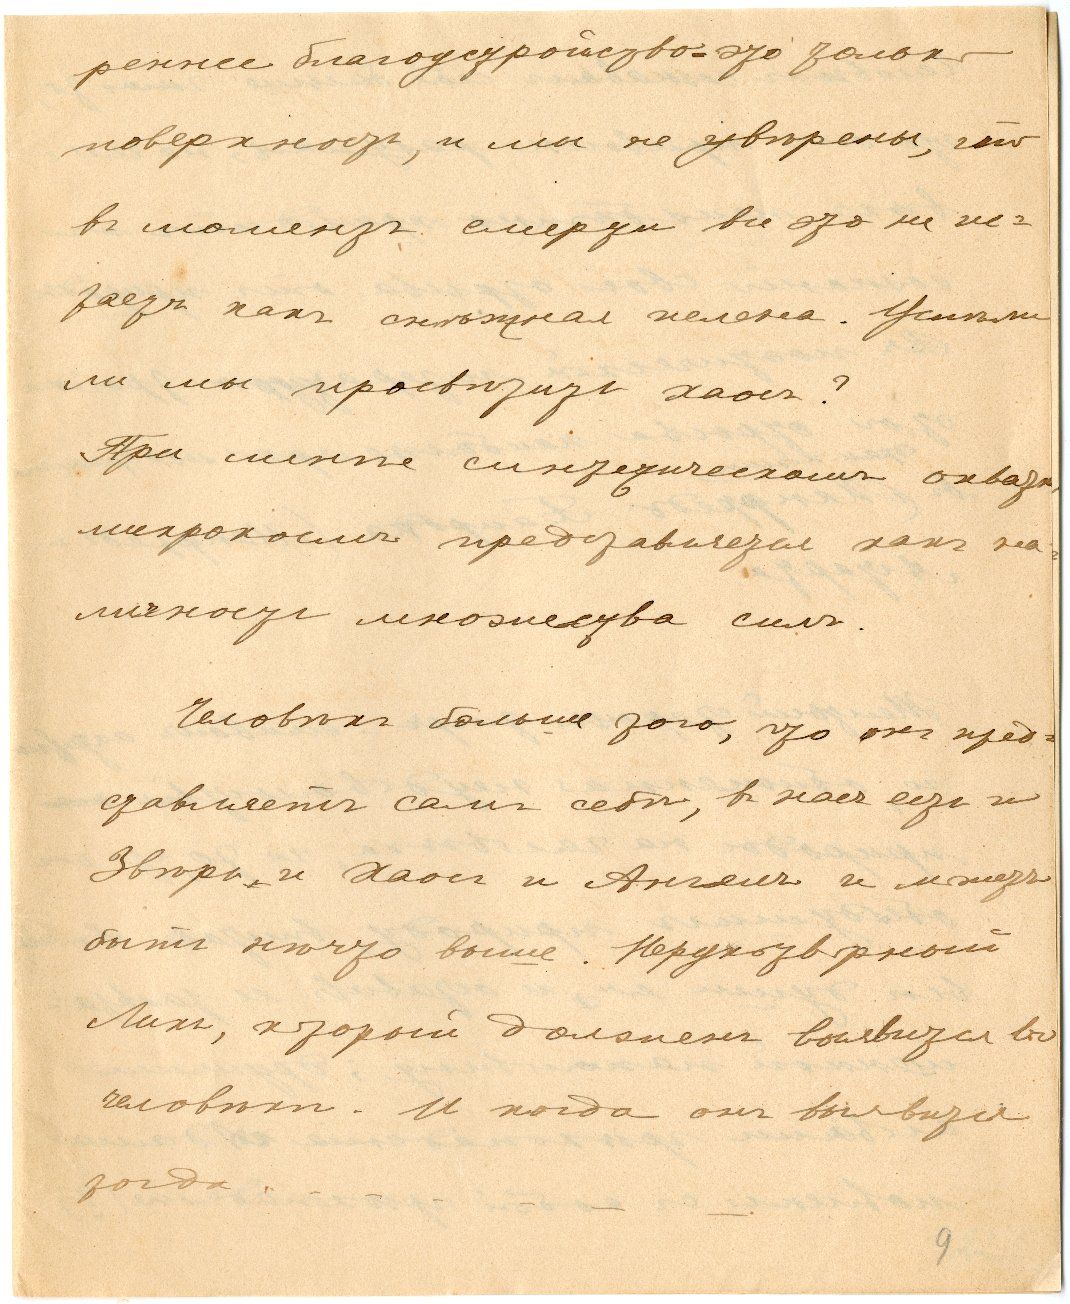 реннее благоустройство - это только
поверхность, и мы не увѣрены, что
въ моментъ смерти все это не не-
таетъ какъ снѣжная пелена. Успѣли
ли мы просвѣтить хаосъ?
При менѣе синтетическомъ охватѣ,
микрокосмъ представляется какъ на-
личность множества силъ.
Человѣкъ больше того, что онъ пред-
ставляетъ самъ себѣ, въ насъ есть и
Звѣрь, и Хаосъ и Ангелъ и можетъ
быть нѣчто выше. Нерукотворный
Ликъ, который долженъ выявится въ
человѣкѣ. И когда онъ выявится
тогда . _ _ _ _ _
9